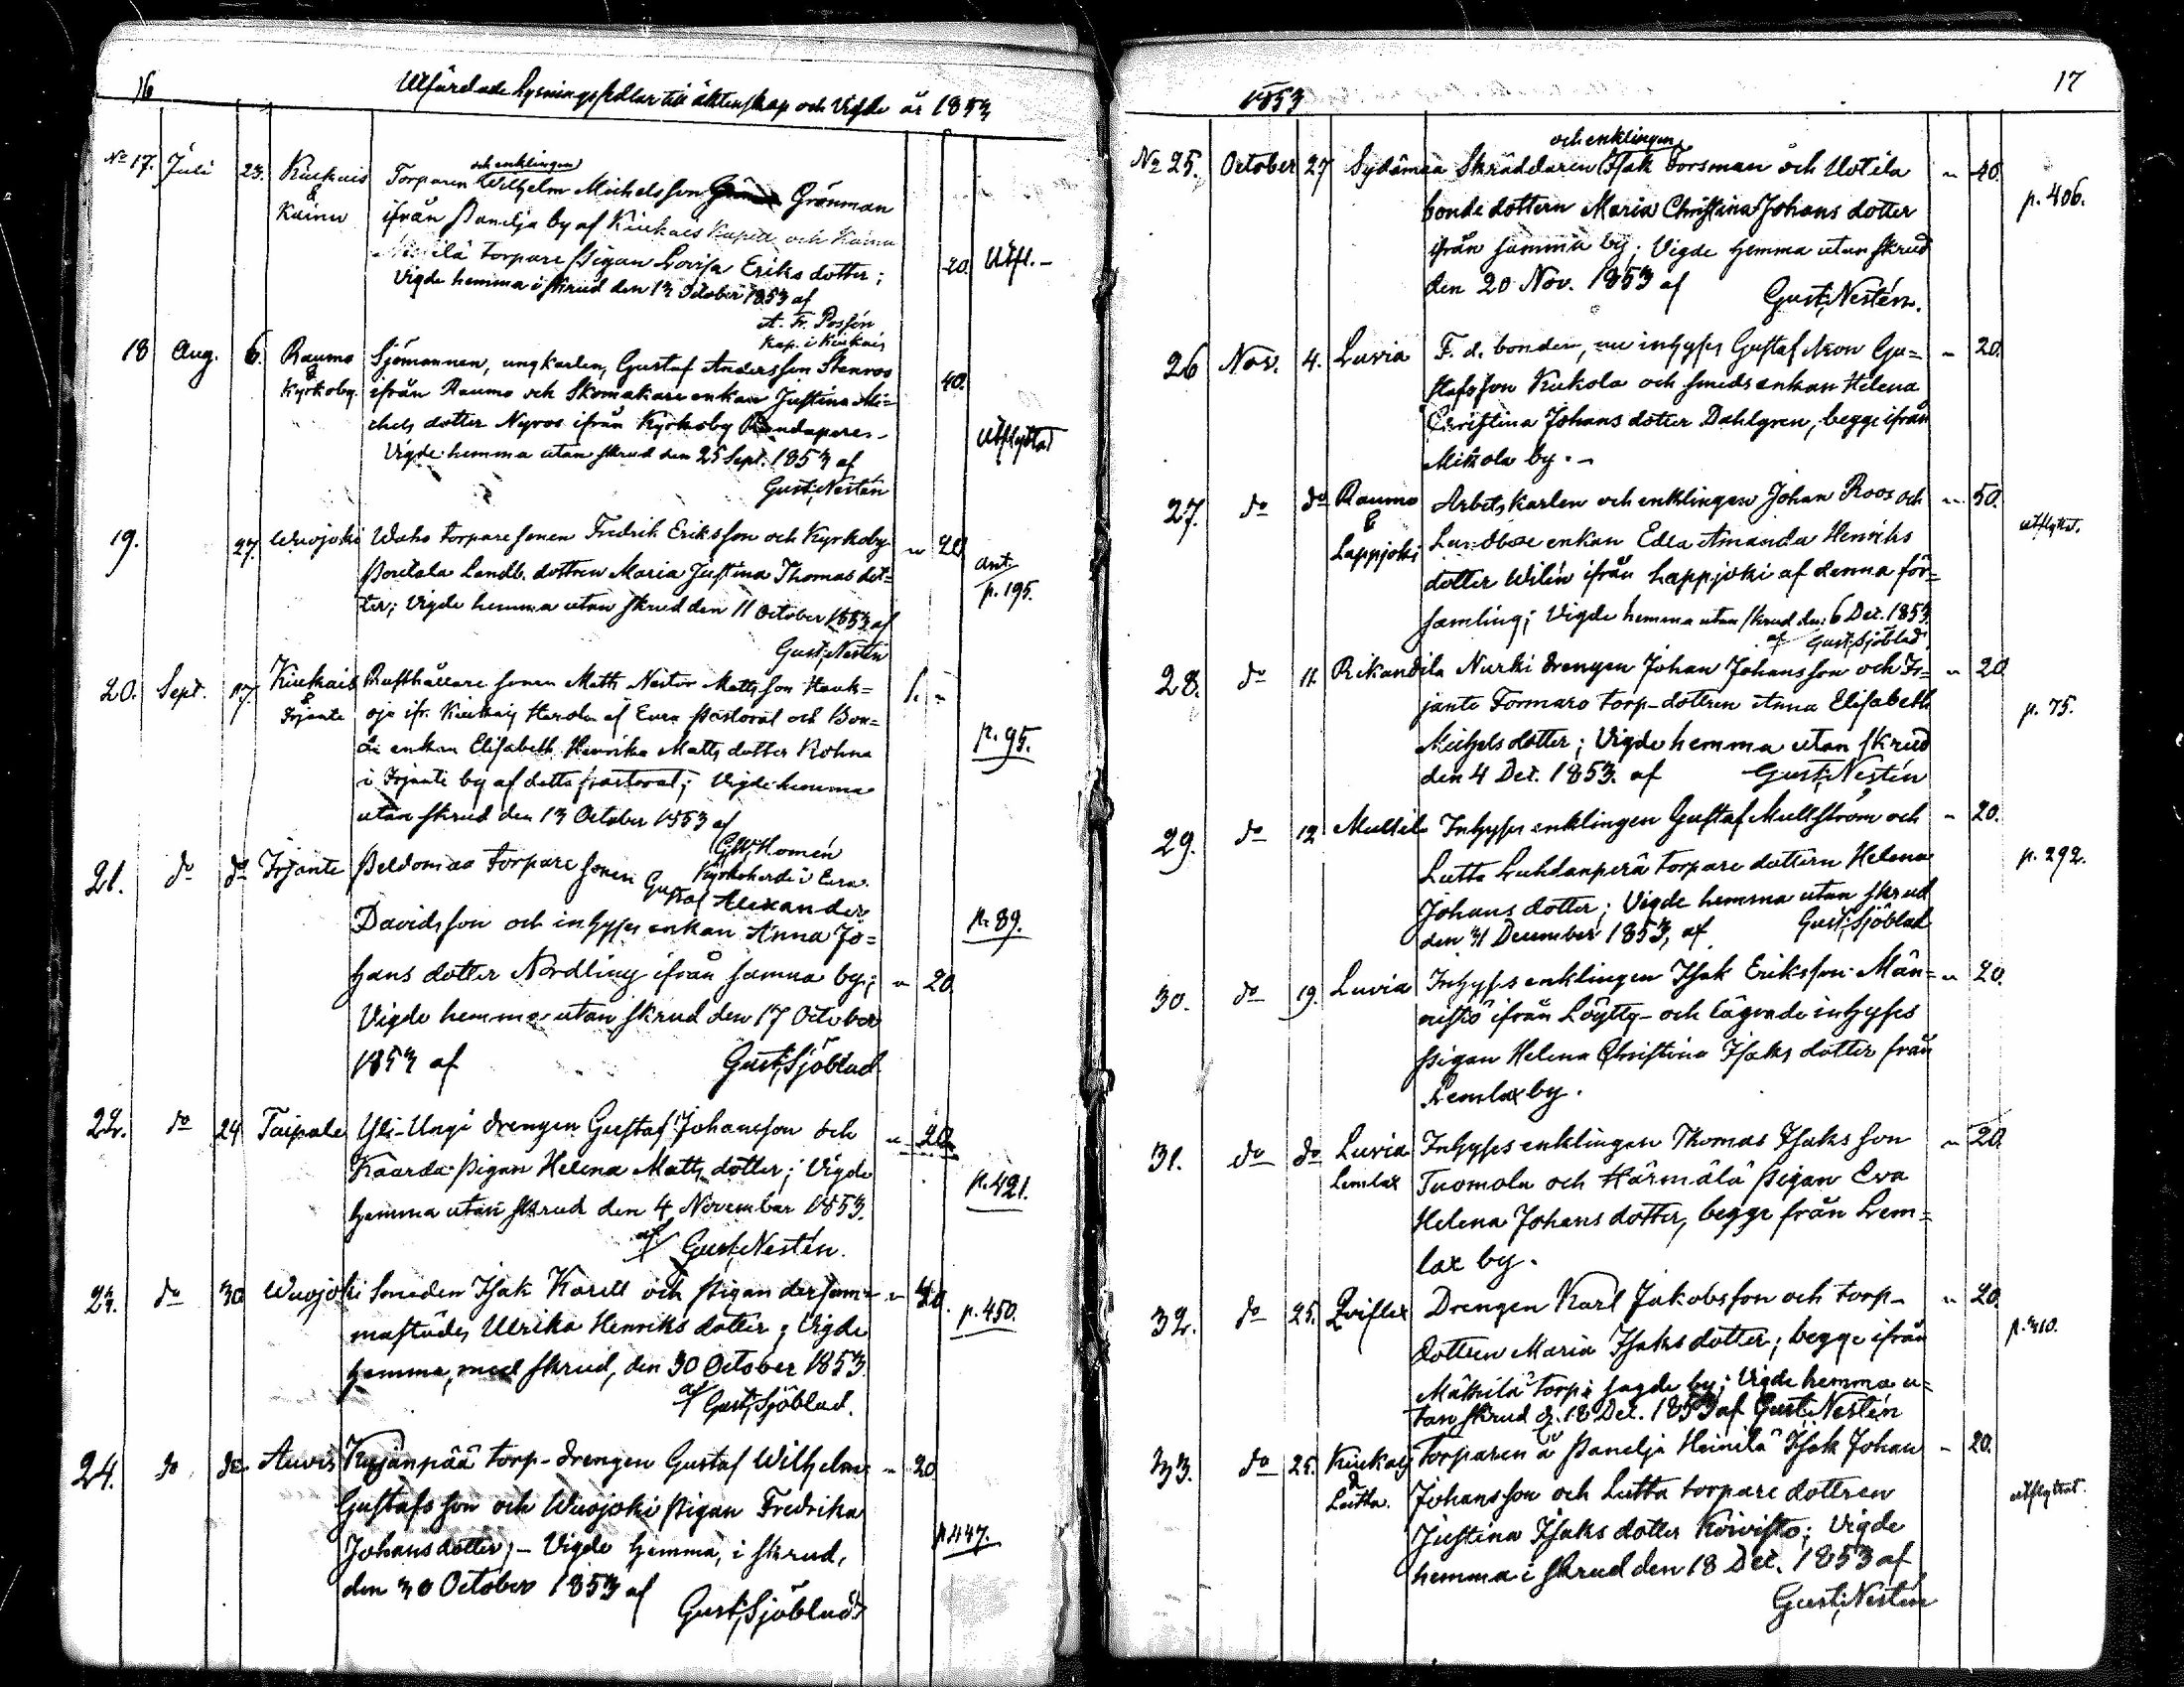 16
Utfärdade Lysningssedlar till äktenskap och Vigde år 1853
No 17. Juli 23. Kiukais & Kainu Torparen och enklingen Wilhelm Michelsson Grönman
ifrån Panelja by af Kiukais Kapell och Kainu
torpare pigan Lovisa Eriks dotter;
Vigde hemma i skrud den 13 October 1853 af
20. Utfl.-
A. Fr. Possén
Kap. i Kiukais
18 Aug. 6. Raumo & Kyrkoby. Sjömannen, ungkarlen, Gustaf Andersson Stenroos
ifrån Raumo och Skomakare enkan Justina Mi=
chels dotter Nyroos ifrån Kyrkoby
40.
Vigde hemma utan skrud den 25 Sept. 1853 af
Utflyttat
Gust; Nestén
19. 27. Wuojoki Waho torpare sonen Fredrik Eriksson och Kyrkoby
Poutala Landb. dottren Maria Justina Thomas dot=
ter; Vigde hemma utan skrud den 11 October 1853 af
" 20 Ant. p. 195.
Gust; Nestén
20. Sept. 17. Kiukais & Irjante Rusthållare sonen Matts Nestor Mattsson Hauk=
oja ifr. Kiukais Harola af Eura Pastorat och Bon=
de enkan Elisabeth Henrika Matts dotter Rohna
i Irjante by af detta pastorat; Vigde hemma
utan skrud den 13 October 1853 af
1. - p. 95.
G W; Homén
Kyrkoherde i Eura.
21. do do Irjante Peldomaa torpare sonen Gustaf Alexander
Davidsson och inhyses enkan Anna Jo=
hans dotter Nordling ifrån samma by;
Vigde hemma utan skrud den 17 October
1853 af Gust; Sjöblad
" 20. p. 89.
22. do 24 Taipale Yli-Ungi drengen Gustaf Johansson och
Kaarda pigan Helena Matts dotter; Vigde
hemma utan skrud den 4 November 1853.
af Gust; Nestén.
" 20 p. 421.
23. do 30 Wuojoki Smeden Isak Karell och pigan dersam=
mastädes Ulrika Henriks dotter; Vigde
hemma, med skrud, den 30 October 1853.
af Gust; Sjöblad.
" 20. p. 450.
24. do do Auvis Kujanpää torp-drengen Gustaf Wilhelm
Gustafsson och Wuojoki pigan Fredrika
Johans dotter; - Vigde hemma, i skrud,
den 30 October 1853 af
Gust; Sjöblad
" 20 p. 447.
1853
17
No 25. October 27 Sydämaa Skräddaren och enklingen Isak Forsman och Uotila
bonde dottern Maria Christina Johans dotter
ifrån samma by; Vigde hemma utan skrud
den 20 Nov. 1853 af Gust; Nestén.
" 40. p. 406.
26 Nov. 4. Luvia F. d. bonden, nu inhyses Gustaf Aron Gu=
stafsson Kukola och smeds enkan Helena
Christina Johans dotter Dahlgren, begge ifrån
Mikola by. -
" 20.
27. do do Raumo & Lappjoki Arbets karlen och enklingen Johan Roos och
Landboe enkan Edla Amanda Henriks
dotter Wilén ifrån Lappjoki af denna för=
samling; Vigde hemma utan skrud den 6 Dec. 1853
af Gust; Sjöblad
" 50. utflyttat.
28. do 11. Rikandila Nurki drengen Johan Johansson och Ir=
jante Formaro torp-dottren Anna Elisabeth
Michels dotter; Vigde hemma utan skrud
den 4 Dec. 1853. af Gust; Nestén
" 20 p. 75.
29. do 12 Mullila Inhyses enklingen Gustaf Mullström och
Lutta Luhdanperä torpare dottern Helena
Johans dotter; Vigde hemma utan skrud
den 31 December 1853, af Gust; Sjöblad
" 20. p. 292.
30. do 19. Luvia Inhyses enklingen Isak Eriksson Män=
nistö ifrån Löytty- och lägrade inhyses
pigan Helena Christina Isaks dotter från
Lemlax by.
" 20.
31. do do Luvia Lemlax Inhyses enklingen Thomas Isaksson
Tuomola och Härmälä pigan Eva
Helena Johans dotter, begge från Lem=
lax by.
" 20.
32. do 25. Qviflax Drengen Karl Jakobsson och torp-
dottren Maria Isaks dotter; begge ifrån
Mattila torp i sagde by; Vigde hemma u=
tan skrud d. 18 Dec. 1853 af Gust; Nestén
" 20. p. 310.
33. do 25. Kiukais & Lutta. Torparen å Panelja Heinilä Isak Johan
Johansson och Lutta torpare dottren
Justina Isaks dotter Koivisto; Vigde
hemma i skrud den 18 Dec. 1853 af
Gust; Nestén
" 20. utflyttat.